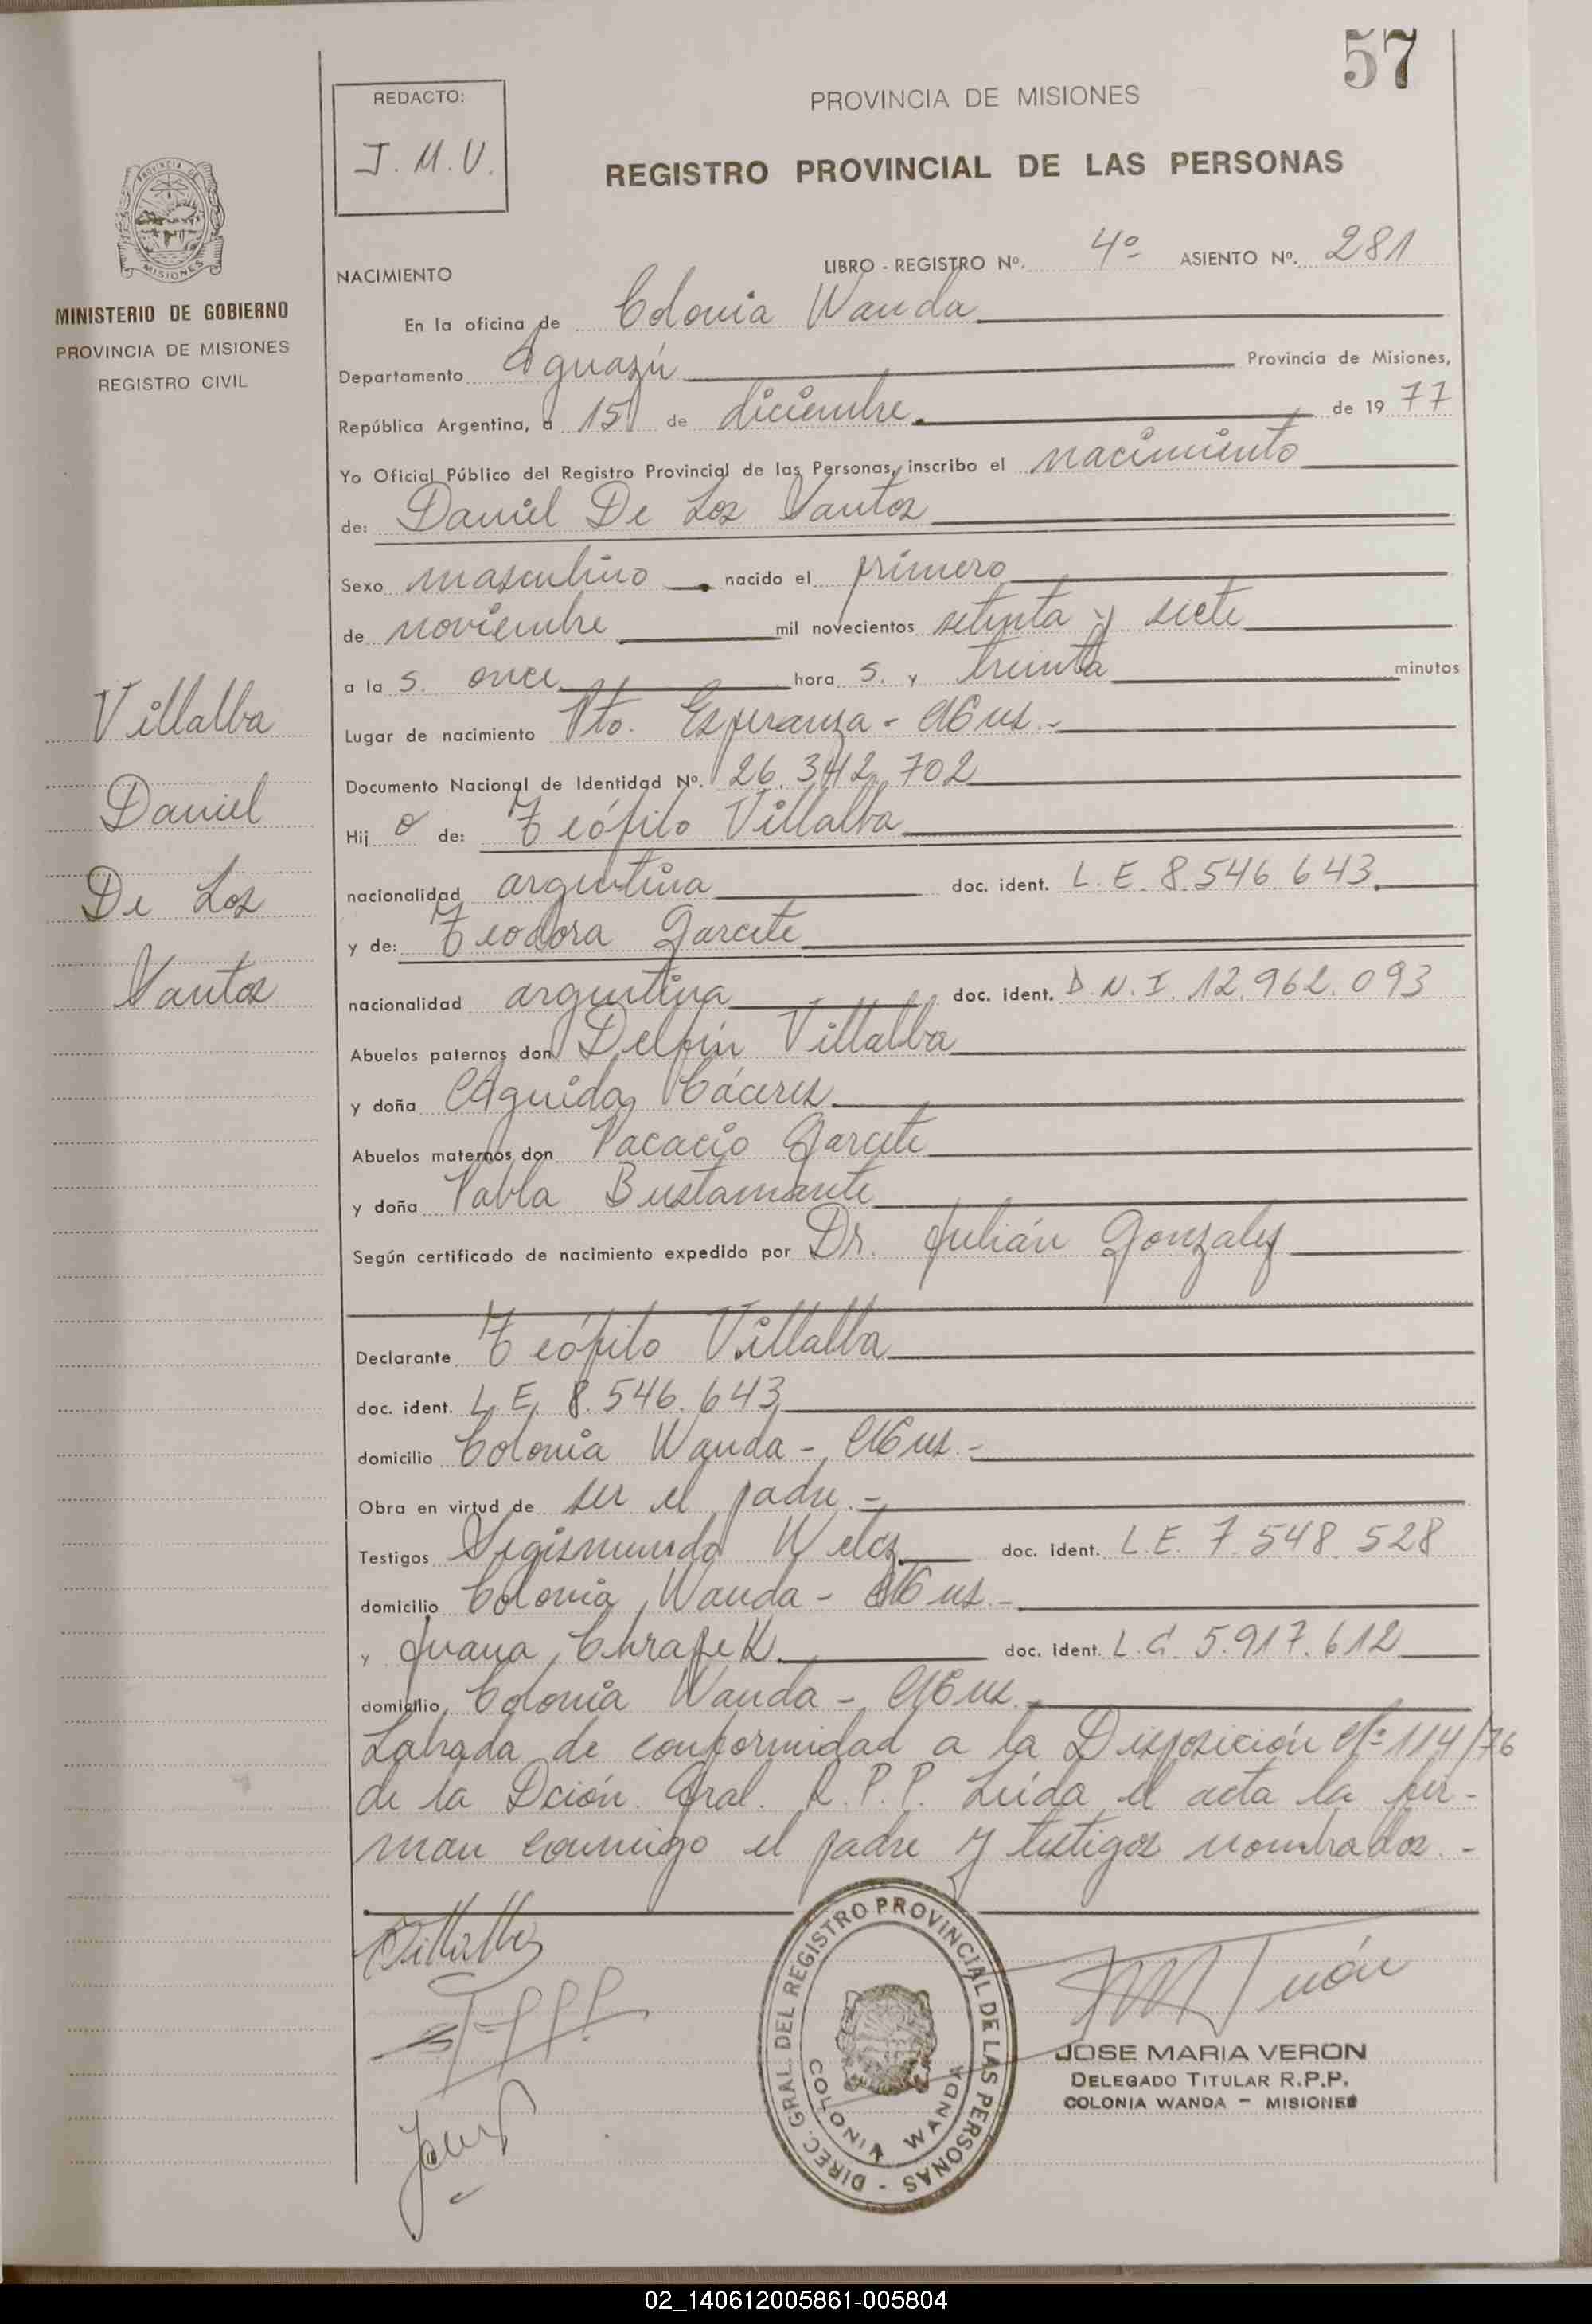 57
REDACTO:
J. M. V.
PROVINCIA DE MISIONES
REGISTRO PROVINCIAL DE LAS PERSONAS
PROVINCIA DE
MISIONES
MINISTERIO DE GOBIERNO
PROVINCIA DE MISIONES
REGISTRO CIVIL
Villalba
Daniel
De Los
Santos
NACIMIENTO
LIBRO - REGISTRO Nº. 4º ASIENTO Nº. 281
En la oficina de Colonia Wanda
Departamento Iguazú Provincia de Misiones,
República Argentina, a 15 de diciembre. de 1977
Yo Oficial Público del Registro Provincial de las Personas, inscribo el nacimiento
de: Daniel De Los Santos
Sexo masculino nacido el primero
de noviembre mil novecientos setenta y siete
a la s. once hora s. y treinta minutos
Lugar de nacimiento Pto. Esperanza - Mnes.-
Documento Nacional de Identidad Nº. 26.342.702
Hij o de: Teófilo Villalba
nacionalidad argentina doc. ident. L. E. 8.546.643.
y de: Teodora Garcete
nacionalidad argentina doc. ident. D.N.I. 12.962.093
Abuelos paternos don Delfín Villalba
y doña Aguida Cáceres
Abuelos maternos don Pacacio Garcete
y doña Pabla Bustamante
Según certificado de nacimiento expedido por Dr. Julián Gonzalez
Declarante Teófilo Villalba
doc. ident. L. E. 8.546.643
domicilio Colonia Wanda - Mnes.-
Obra en virtud de ser el padre.-
Testigos Segismundo Welcz doc. ident. L.E. 7.548.528
domicilio Colonia Wanda - Mnes.-
y Juana Chrapek doc. ident. L.C. 5.917.612
domicilio Colonia Wanda - Mnes.-
Labrada de conformidad a la Disposición Nº 114/76
de la Dción. Gral. R.P.P. Leída el acta la fir-
man conmigo el padre y testigos nombrados.-
Villalba
DIREC. GRAL. DEL REGISTRO PROVINCIAL DE LAS PERSONAS -
COLONIA WANDA
JOSE MARIA VERON
DELEGADO TITULAR R.P.P.
COLONIA WANDA - MISIONES
02_140612005861-005804